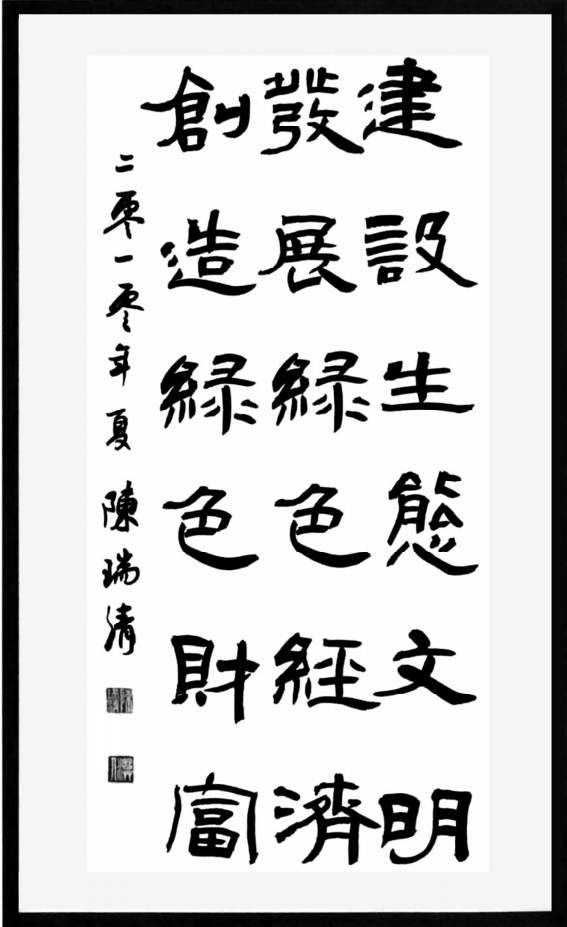 建設生態文明
發展緑色經濟
創造緑色財富
二零一零年夏 陳瑞清